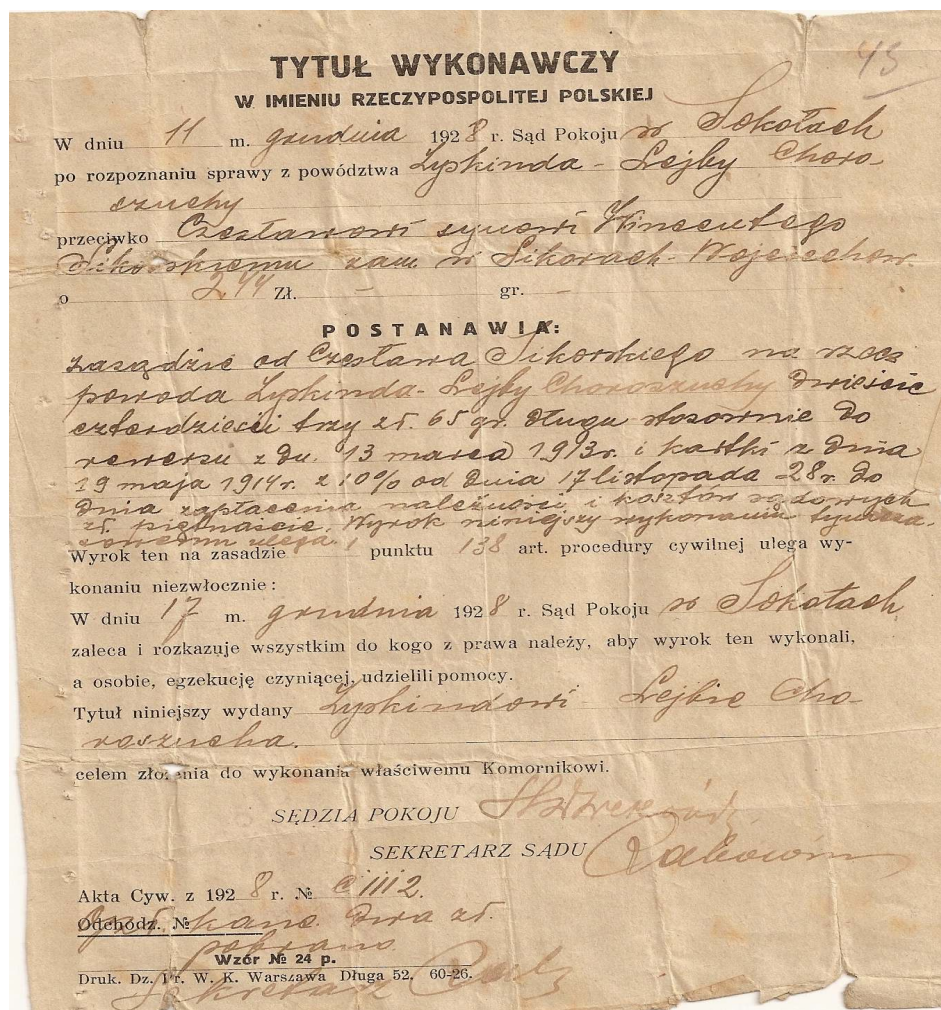 45
TYTUŁ WYKONAWCZY
W IMIENIU RZECZYPOSPOLITEJ POLSKIEJ
W dniu 11 m. grudnia 1928 r. Sąd Pokoju w Sokołach
po rozpoznaniu sprawy z powództwa Zyskinda - Lejby Choro-
szuchy
przeciwko Czesławowi synowi Wincentego
Sikorskiemu zam w Sikorach-Wojciechow.
o 244 Zł. — gr. —
POSTANAWIA:
zasądzić od Czesława Sikorskiego na rzecz
powoda Zyskinda-Lejby Choroszuchy dwieście
czterdzieści trzy zł. 65 gr. długu stosownie do
rewersu z dn. 13 marca 1913r. i kartki z dnia
19 maja 1914r. z 10% od dnia 17 listopada 28r. do
dnia zapłacenia należności i kosztów sądowych
zł. piętnaście. Wyrok niniejszy wykonaniu tymcza-
sowemu ulega.
Wyrok ten na zasadzie 1 punktu 138 art. procedury cywilnej ulega wy-
konaniu niezwłocznie:
W dniu 17 m. grudnia 1928 r. Sąd Pokoju w Sokołach
zaleca i rozkazuje wszystkim do kogo z prawa należy, aby wyrok ten wykonali,
a osobie, egzekucję czyniącej, udzielili pomocy.
Tytuł niniejszy wydany Zyskindowi - Lejbie Cho-
roszucha.
celem złożenia do wykonania właściwemu Komornikowi.
SĘDZIA POKOJU
SEKRETARZ SĄDU
Akta Cyw. z 1928 r. № C 1112.
Odchodz. № dwa zł.
pobrano
Wzór № 24 p.
Druk. Dz. Pr. W. K. Warszawa Długa 52. 60-26.
Sekretarz